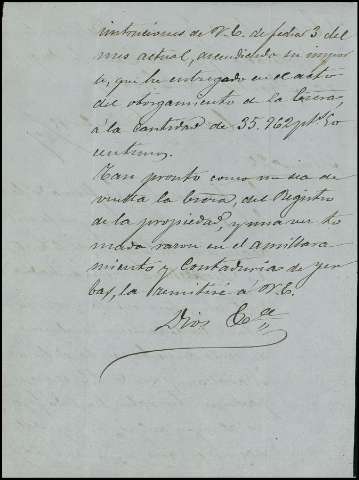 instrucciones de V.E. de fecha 3 del
mes actual, ascendiendo su impor
te, que he entregado en el acto
del otorgamiento de la misma,
á la cantidad de 35.962 pts 50
centimos.
Tan pronto como me sea de
vuelta la misma, del Registro
de la propiedad, y una vez to
mada razon en el amillara
miento y Contaduría de
la remitiré á V.E.
Dios &ce